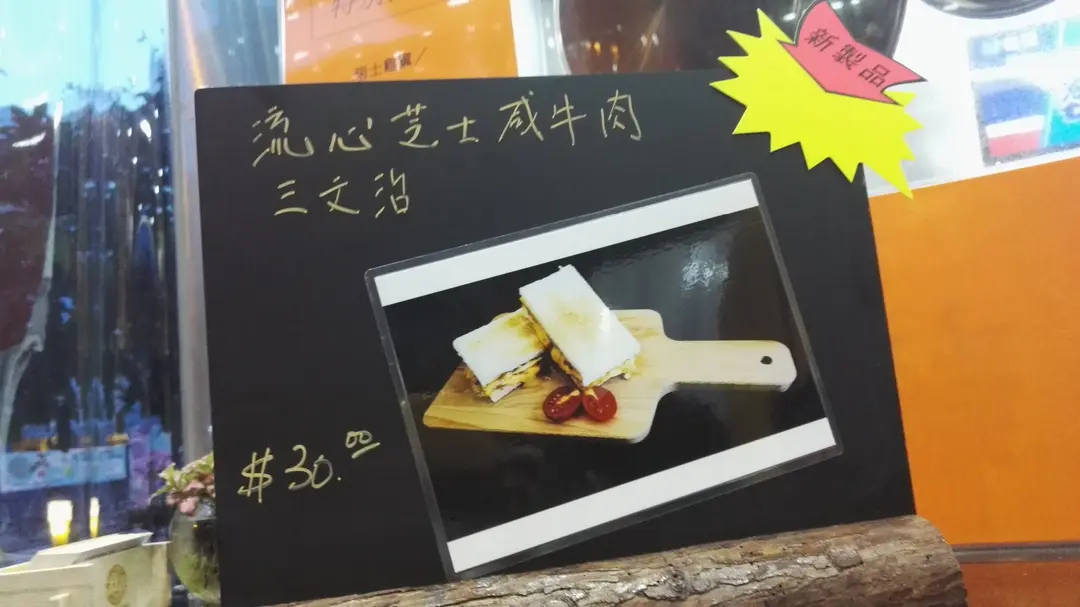 新製品
流心芝士咸牛肉
三文治
$30.00